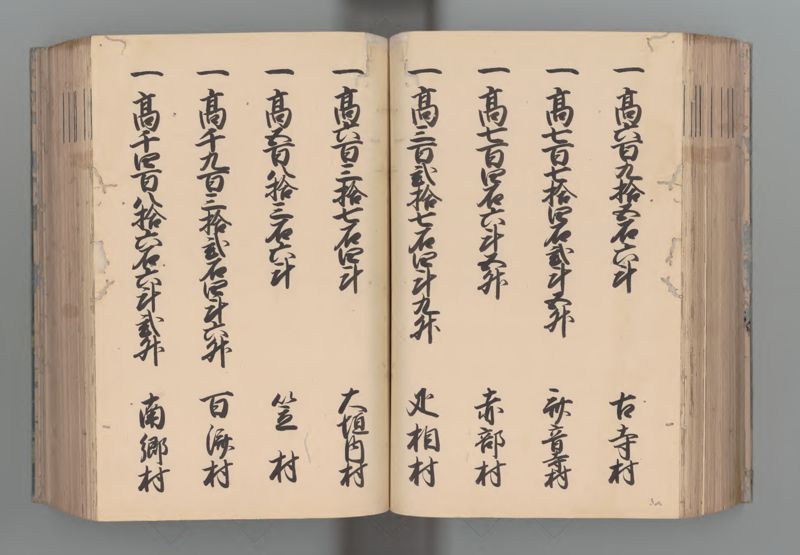 一 髙六百九拾五石六斗 古寺村
一 髙七百七拾四石弐斗五升 音寺村
一 髙七百四石六斗五升 赤部村
一 髙三百弐拾七石四斗九升 疋相村
一 髙六百三拾七石四斗 大垣内村
一 髙五百八拾三石六斗 笠村
一 髙千九百三拾弐石四斗六升 百済村
一 髙千四百八拾六石六斗弐升 南郷村